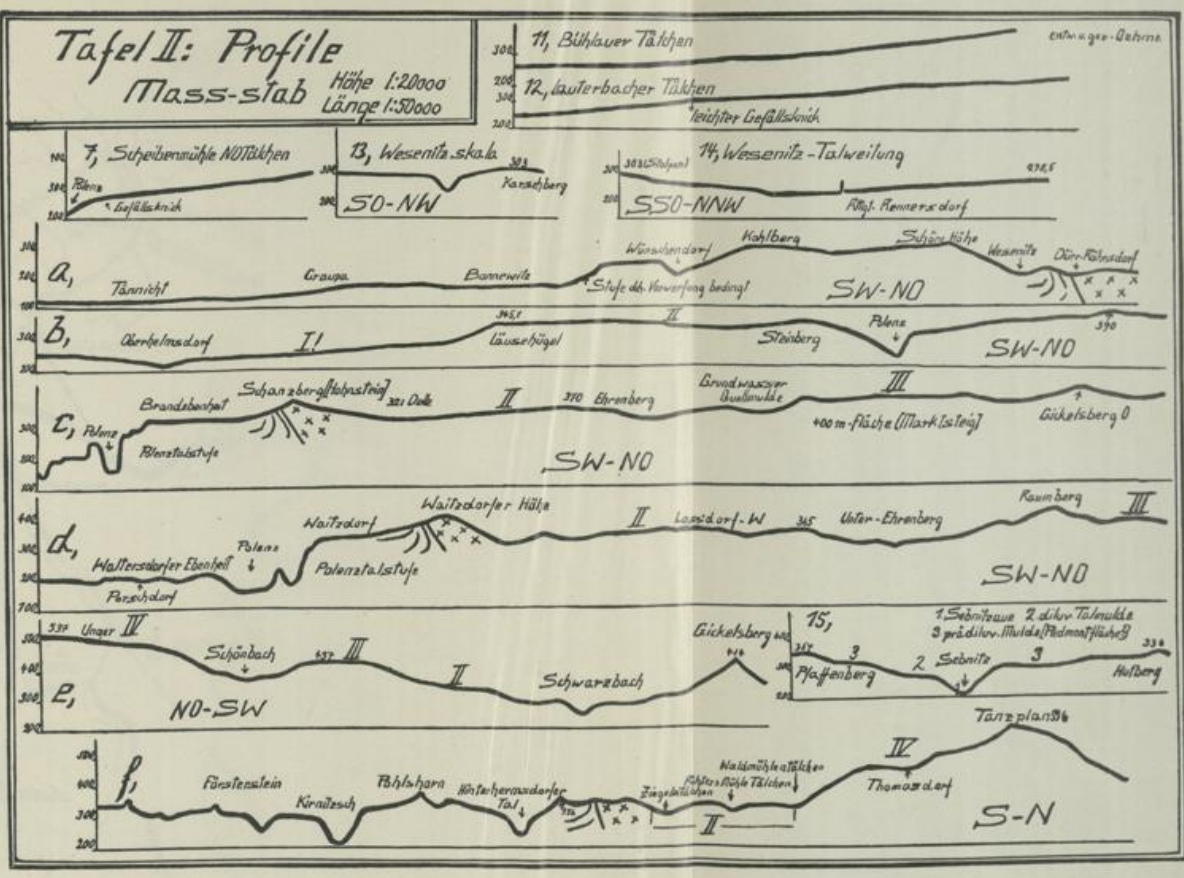 Tafel II: Profile
Mass-stab Höhe 1:20000
Länge 1:50000
11, Bühlauer Tälchen
300
200
12, Lauterbacher Tälchen
300
200
leichter Gefällsknick
7, Scheibenmühle NO Tälchen
400
300
200
Polenz
Gefällsknick
13, Wesenitz.skala
300
200
303
Karschberg
SO-NW
14, Wesenitz-Talweilung
300
200
303 (Stolpen)
278,5
Rttgt. Rennersdorf
SSO-NNW
a,
300
200
100
Tännicht
Graupa
Bonnewitz
Stufe dch. Verwerfung bedingt
Wünschendorf
Kohlberg
Schöne Höhe
Wesenitz
Dürr-Röhrsdorf
SW-NO
b,
300
200
Oberhelmsdorf
I!
345,1
Läusehügel
II
Steinberg
Polenz
390
SW-NO
c,
300
200
100
Polenz
Brandebenheit
Polenztalstufe
Schanzberg [Hohnstein]
321 Delle
II
370 Ehrenberg
Grundwasser
Quellmulde
III
400 m-Fläche [Marktsteig]
Gickelsberg O
SW-NO
d,
400
300
200
100
Waltersdorfer Ebenheit
Porschdorf
Polenz
Waitzdorf
Polenztalstufe
Waitzdorfer Höhe
II
Lohsdorf-W
365
Unter-Ehrenberg
Raumberg
III
SW-NO
e,
500
400
300
200
537 Unger IV
Schönbach
457
III
II
Schwarzbach
Gickelsberg
414
NO-SW
15,
400
300
200
1. Sebnitzaue 2 diluv. Talmulde
3 prädiluv. Mulde (Piedmontfläche?)
357
Pfaffenberg
3
2
Sebnitz
1
3
334
Hutberg
f,
500
400
300
200
Förstenstein
Kirnitzsch
Pohlshorn
Hinterhermsdorfer
Tal
Ziegeleitälchen
Waldmühlentälchen
II
IV
Thomasdorf
Tanzplan 596
S-N